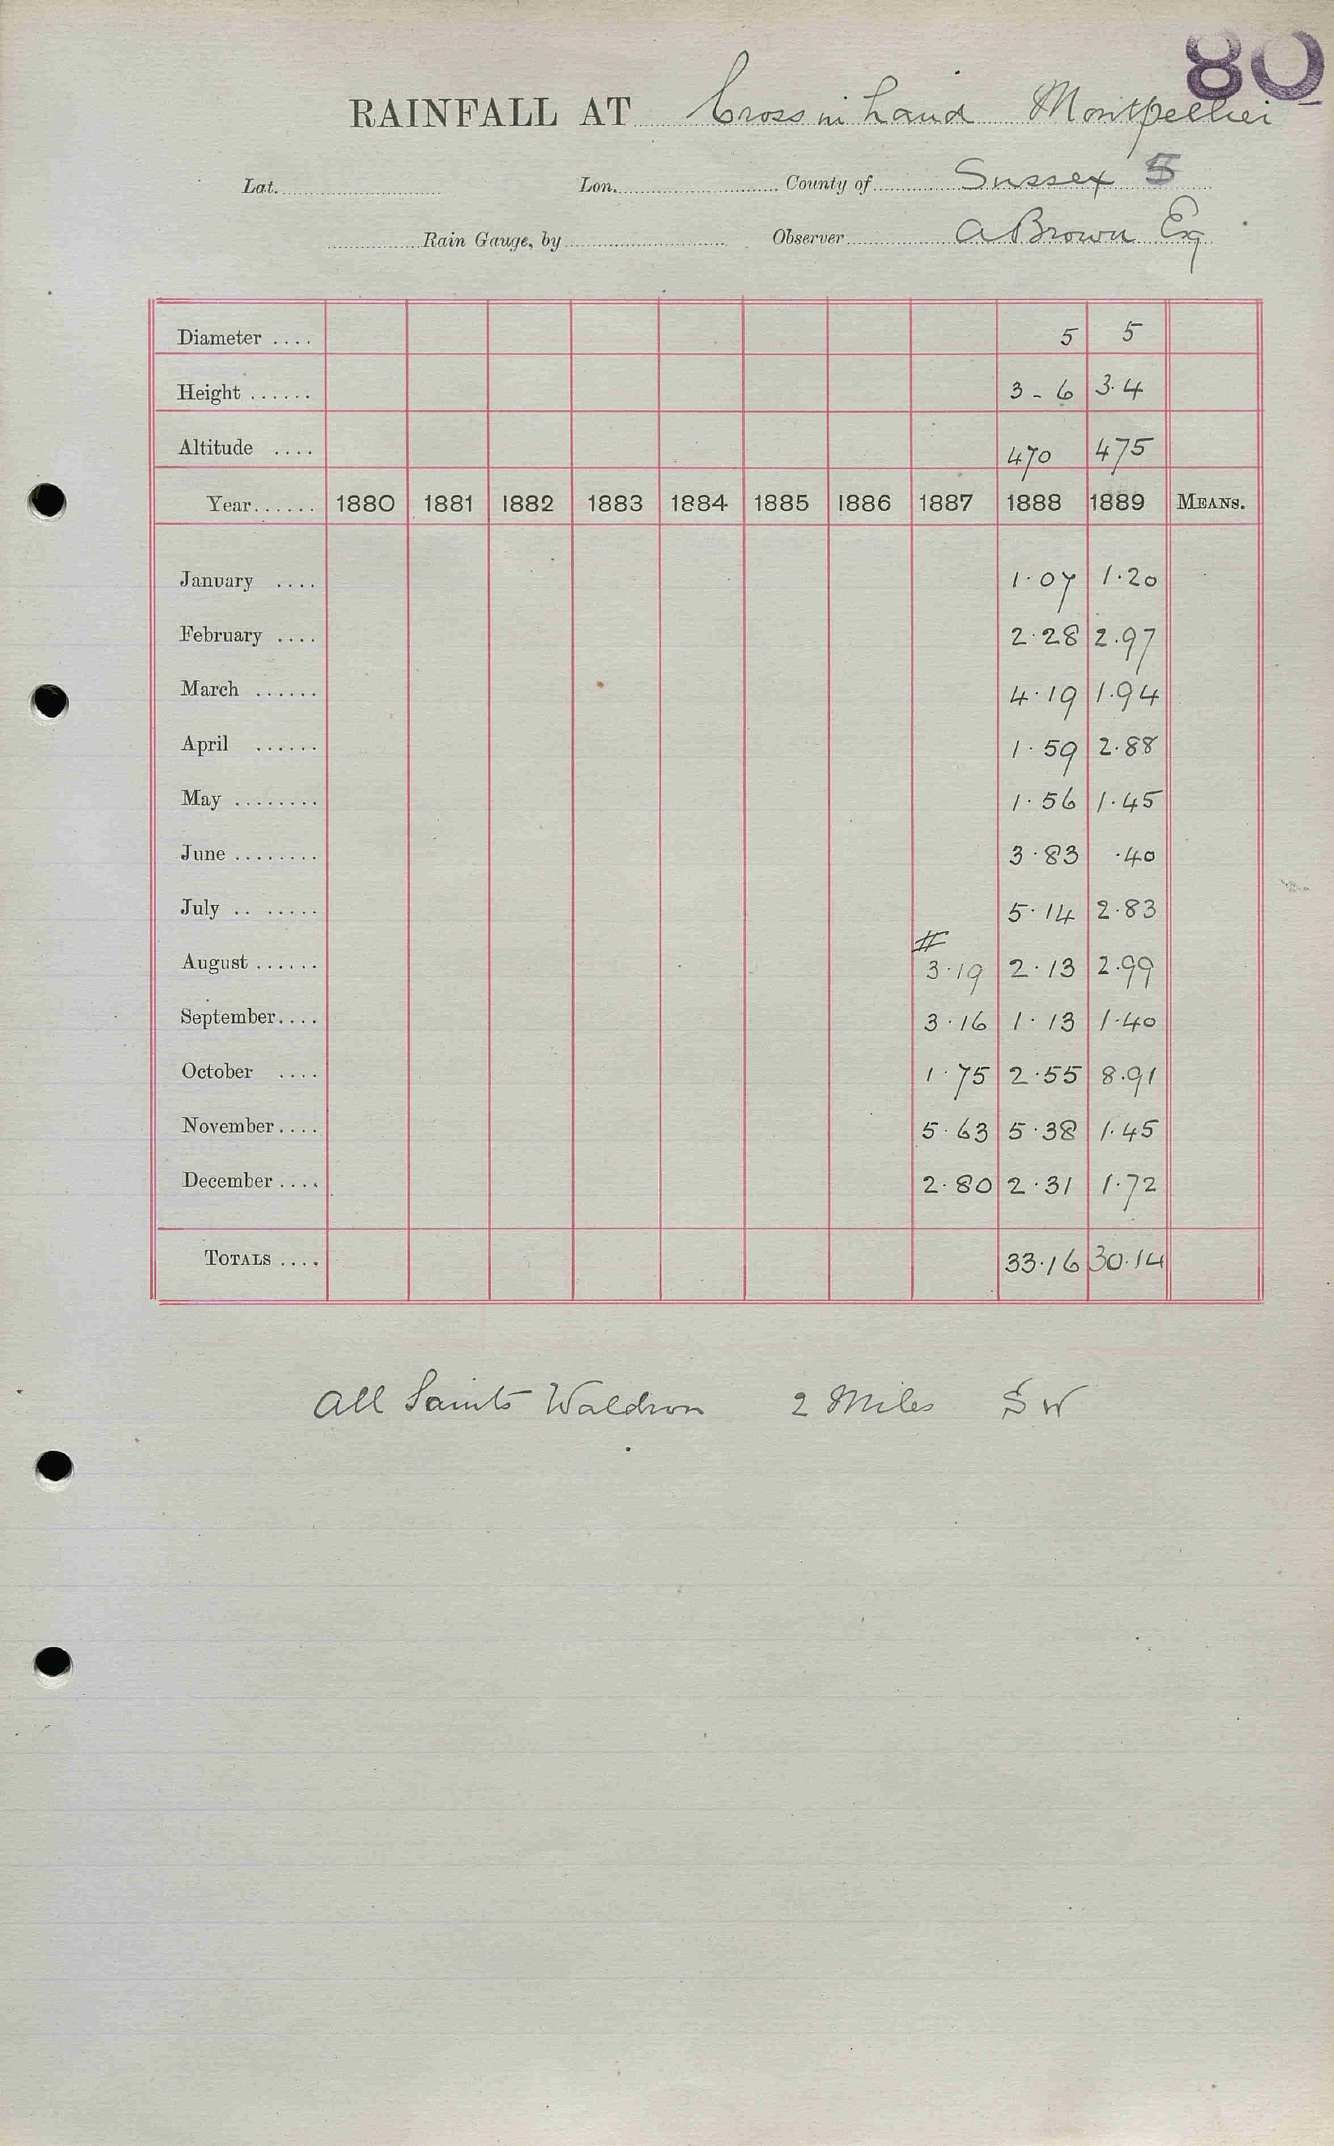 80
RAINFALL AT Cross in hand Montpellier
Lat. Lon. County of Sussex 5
Rain Gauge, by Observer A Brown Esq
Diameter .... 5 5
Height ...... 3 - 6 3.4
Altitude .... 470 475
Year...... 1880 1881 1882 1883 1884 1885 1886 1887 1888 1889 MEANS.
January .... 1.07 1.20
February .... 2.28 2.97
March ...... 4.19 1.94
April ...... 1.59 2.88
May ........ 1.56 1.45
June ........ 3.83 .40
July .. ..... 5.14 2.83
#
August ...... 3.19 2.13 2.99
September.... 3.16 1.13 1.40
October .... 1.75 2.55 8.91
November.... 5.63 5.38 1.45
December .... 2.80 2.31 1.72
TOTALS .... 33.16 30.14
All Saints Waldron 2 Miles S W